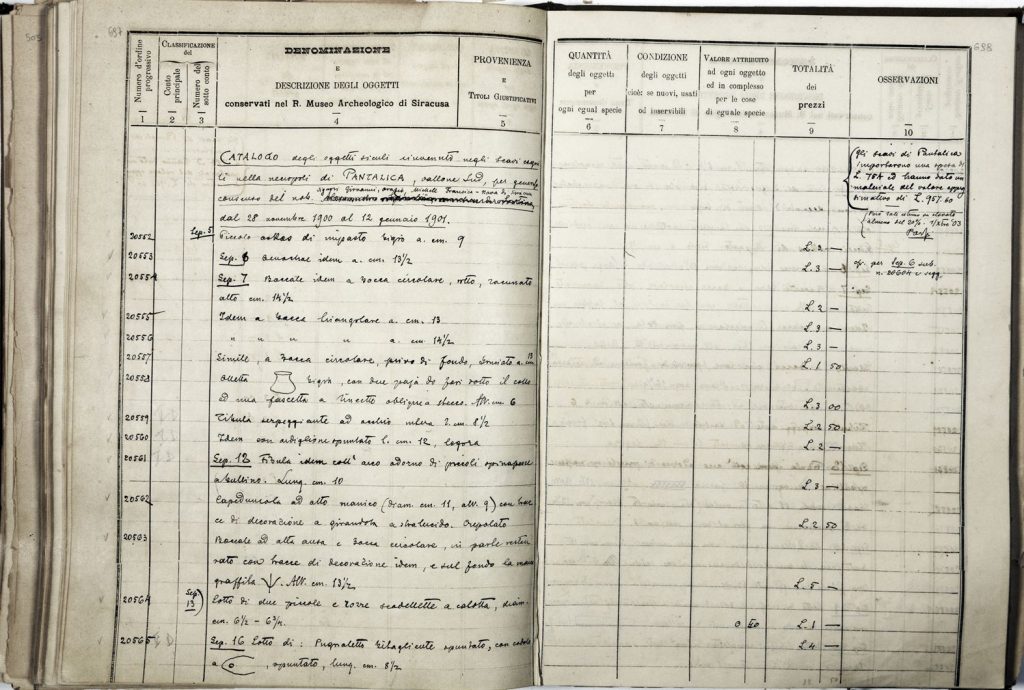 687
Numero d'ordine progressivo
1
CLASSIFICAZIONE del
Conto principale
2
Numero del sotto conto
3
DENOMINAZIONE
E
DESCRIZIONE DEGLI OGGETTI
conservati nel R. Museo Archeologico di Siracusa
4
PROVENIENZA
E
TITOLI GIUSTIFICATIVI
5
CATALOGO degli oggetti siculi rinvenuti negli scavi esegui
ti nella necropoli di PANTALICA, vallone Sud, per generoso
consenso del nob.
dal 28 novembre 1900 al 12 gennaio 1901.
20552 Sep. 5 Piccolo askos di impasto bigio a. cm. 9
20553 Sep. 6 idem a. cm. 13½
20554 Sep. 7 Boccale idem a bocca circolare, rotto,
alto cm. 14½
20555 Idem a bocca triangolare a. cm. 13
20556 " " " " a. cm. 14½
20557 Simile, a bocca circolare, privo di fondo, bruciato a. cm. 13
20558 Olletta bigia, con due paja di fori sotto il collo
ed una fascetta a lineette oblique a stecco. Alt. cm. 6
20559 Fibula serpeggiante ad occhio intera l. cm. 8½
20560 Idem con ardiglione spuntato l. cm. 12, logora
20561 Sep. 12 Fibula idem coll' arco adorno di piccoli spinapesce
a bullino. Lung. cm. 10
20562 Capeduncola ad alto manico (diam. cm. 11, alt. 9) con trac
ce di decorazione a girandola a stralucido. Crepolato
20563 Boccale ad alta ansa e bocca circolare, in parte restau
rato con tracce di decorazione idem, e sul fondo la marca
graffita. Alt. cm. 13½
20564 Sep. 13 Lotto di due piccole e rozze scodellette a calotta, diam.
cm. 6½ - 6¾.
20565 Sep. 16 Lotto di: Pugnaletto bitagliente spuntato, con codolo
a , spuntato, lung. cm. 8½
688
QUANTITÀ
degli oggetti
per
ogni egual specie
6
CONDIZIONE
degli oggetti
cioè: se nuovi, usati
od inservibili
7
VALORE ATTRIBUITO
ad ogni oggetto
ed in complesso
per le cose
di eguale specie
8
TOTALITÀ
dei
prezzi
9
OSSERVAZIONI
10
Gli scavi di Pantalica
importarono una spesa di
L. 784 ed hanno dato un
materiale del valore appros
simativo di L. 957.60
almeno del 20%
cfr. per Sep. 6 sub.
n. 20604 e segg.
L. 3 —
L. 3 —
L. 2 —
L. 3 —
L. 3 —
L. 1 50
L. 3 00
L. 2 50
L. 2 —
L. 3 —
L. 2 50
L. 5 —
L. 1 —
L. 4 —